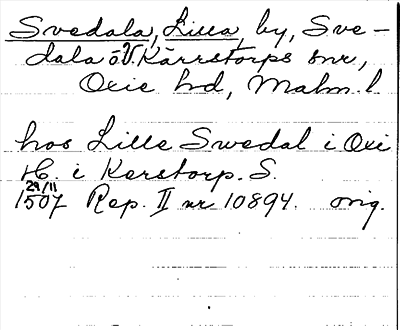 Svedala, Lilla, by, Sve-
dala o. V. Kärrstorps snr,
Oxie hd, Malm. l.
hos Lille Swedal i Oxi
H. i Kerstorp. S.
29/11
1507 Rep. II nr 10894. orig.